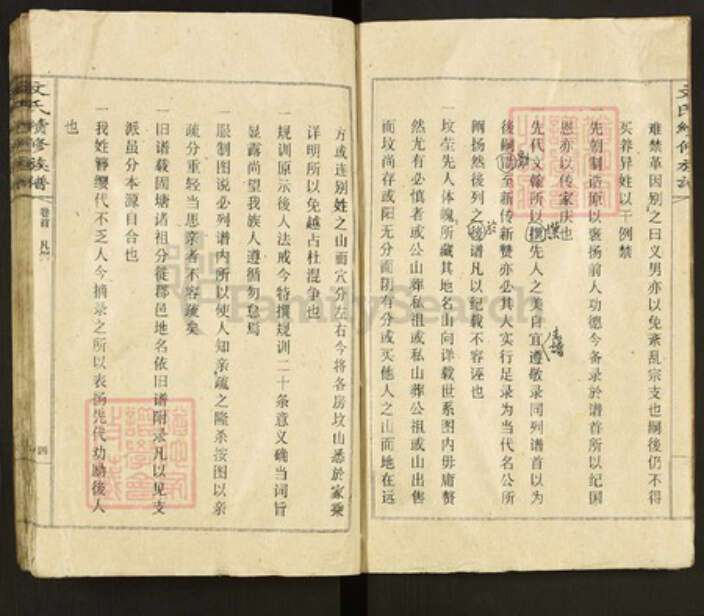 难禁革因别之曰义男亦以免紊乱宗支也嗣後仍不得
买养异姓以干例禁
一先朝制诰原以褒扬前人功德今备录於谱首所以纪国
恩亦以传家庆也
一先代文翰所以撰先人之美自宜遵敬录同列谱首以为
後嗣至新传新赞亦必其人实行足录为当代名公所
阐扬然後列之後谱凡以纪载不容诬也
一坟茔先人体魄所藏其地名山向详载世系图内毋庸赘
然尤有必慎者或公山葬私祖或私山葬公祖或山出售
而坟尚存或阳无分而阴有分或买他人之山而地在远
方或连别姓之山而穴分左右今将各房坟山悉於家乘
详明所以免越占杜混争也
一规训原示後人法戒今特撰规训二十条意义确当词旨
显露尚望我族人遵循勿怠焉
一服制图说必列谱内所以使人知亲疏之隆杀按图以亲
疏分重轻当思亲者不容疏矣
一旧谱载固塘诸祖分徙郡邑地名依旧谱附录凡以见支
派虽分本源自合也
一我姓簪缨代不乏人今摘录之所以表扬先代劝励後人
也
文氏续修族谱
卷首 凡例
四
FamilySearch